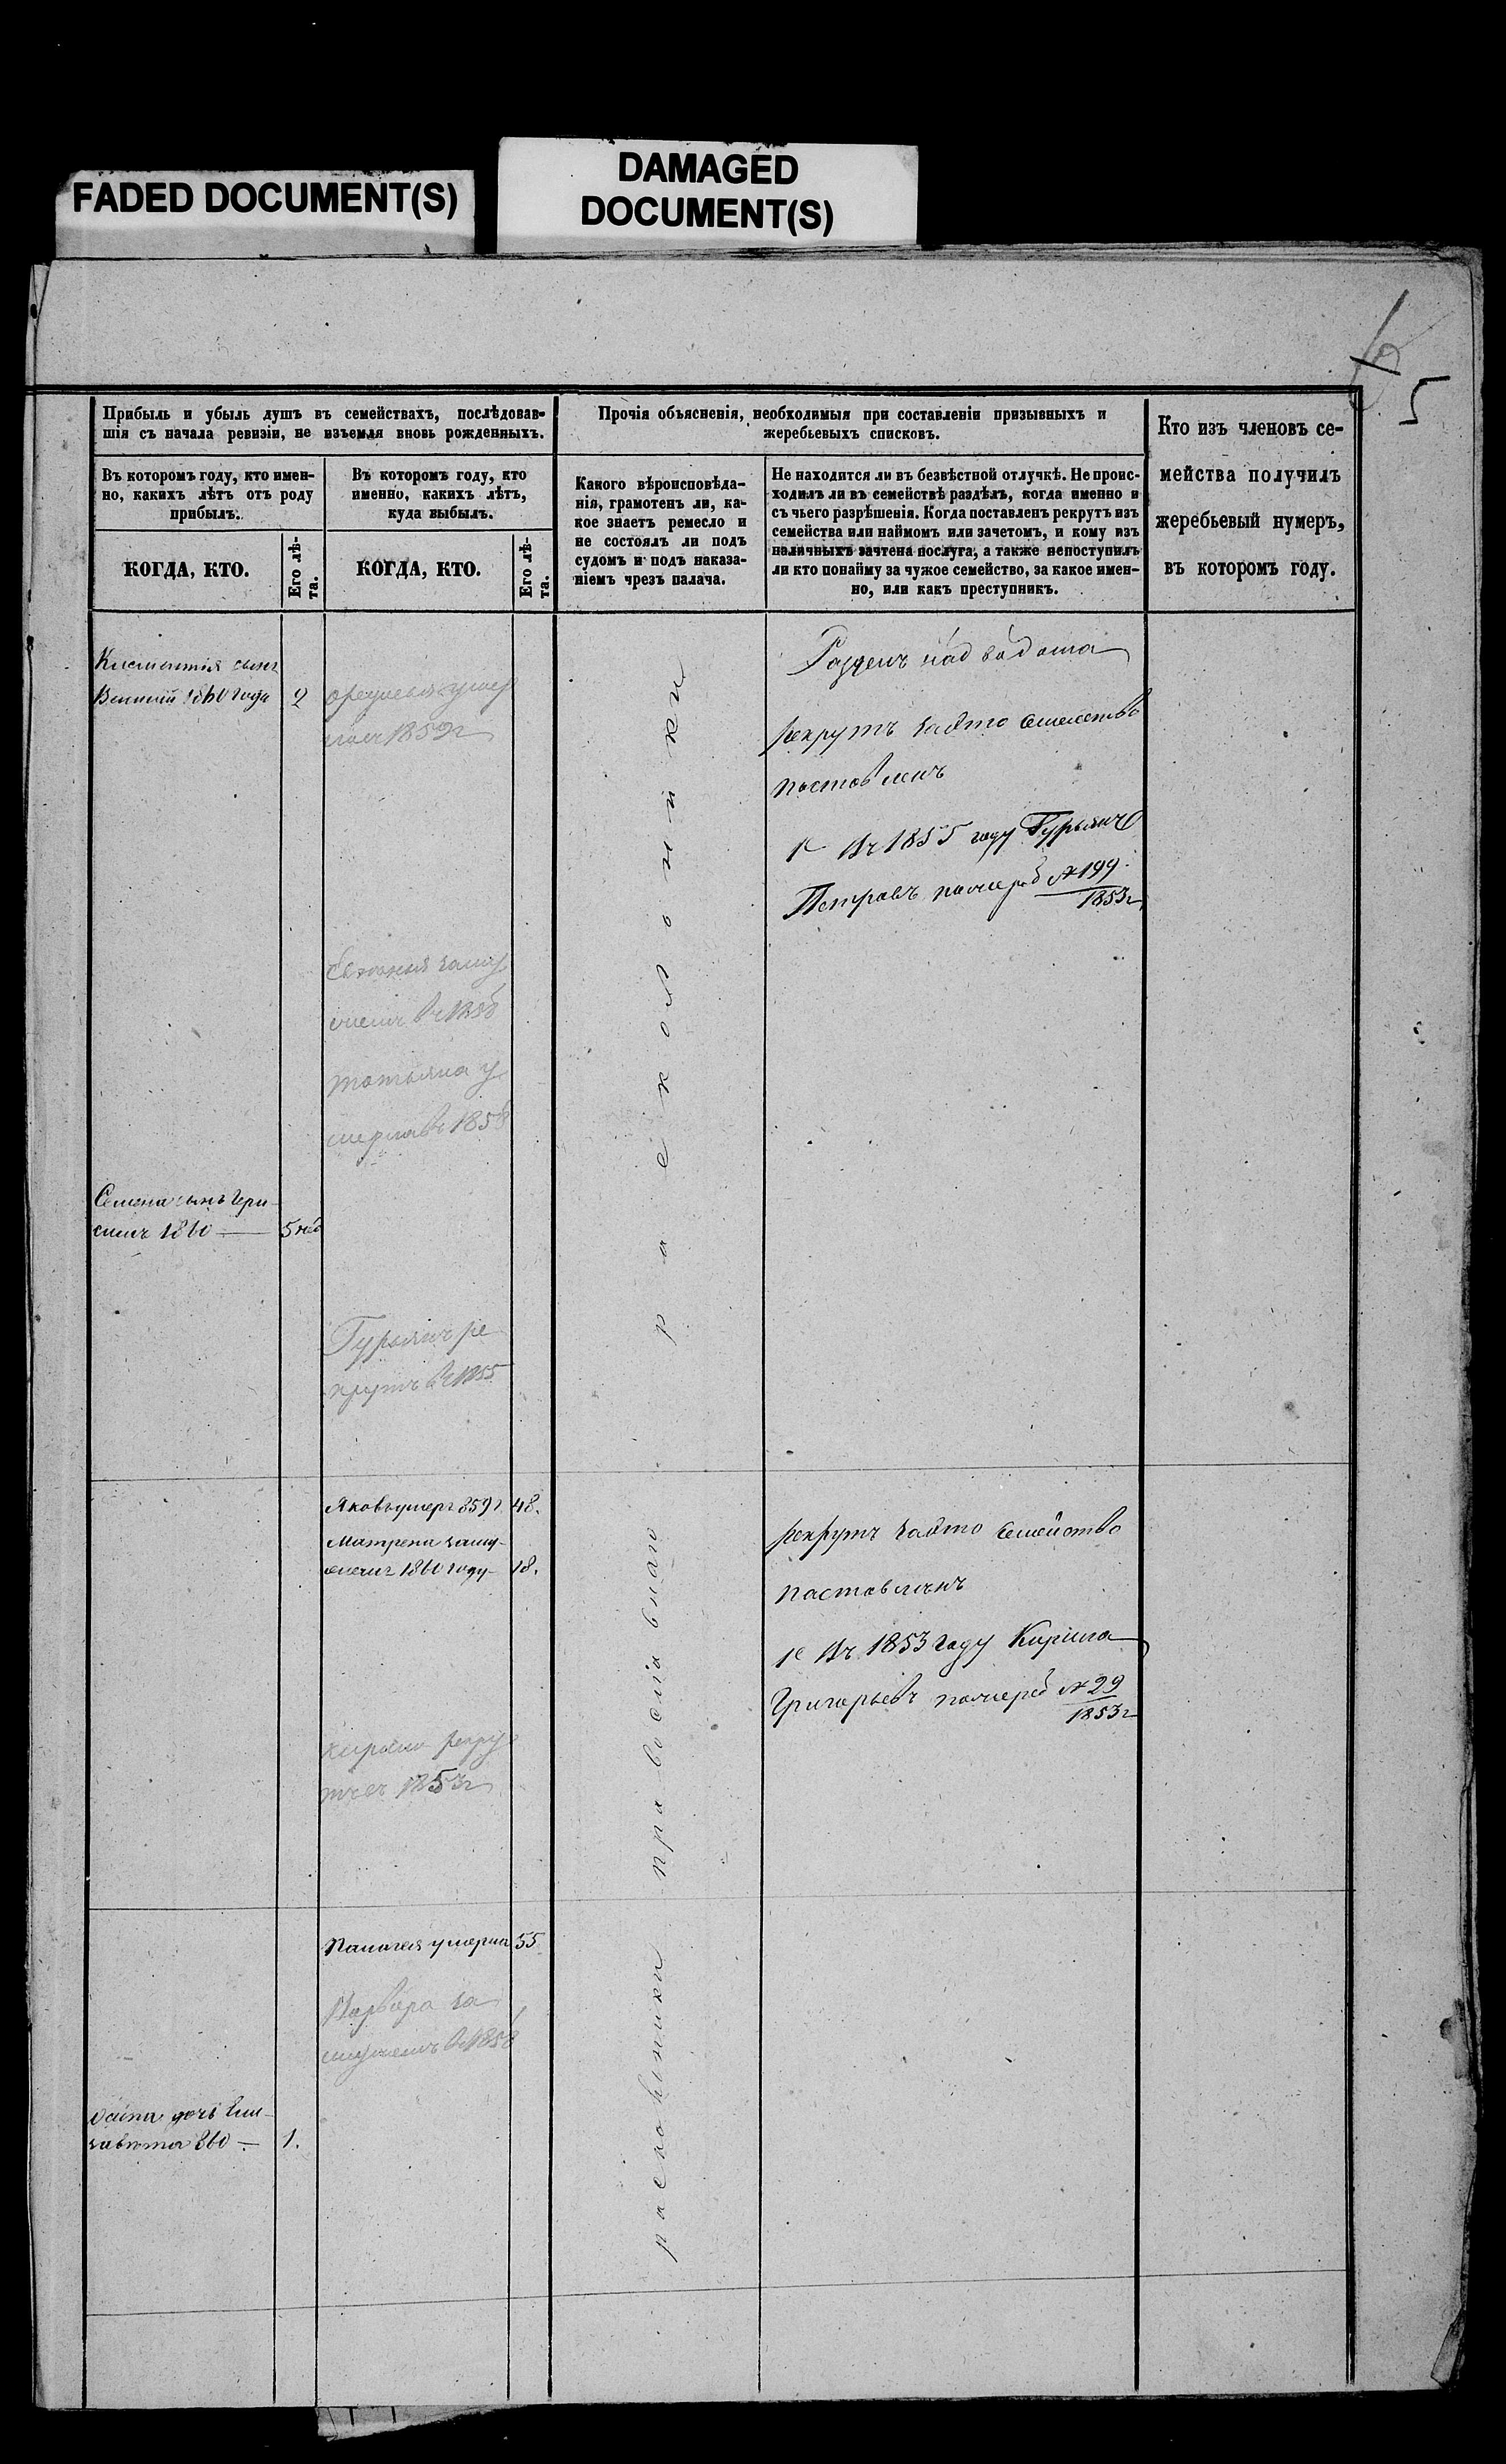 FADED DOCUMENT(S)
DAMAGED
DOCUMENT(S)
5
Прибыль и убыль душъ въ семействахъ, послѣдовав-
шія съ начала ревизіи, не взъемля вновь рожденныхъ.
Прочія объясненія, необходимыя при составленіи призывныхъ и
жеребьевыхъ списковъ.
Кто изъ членовъ се-
мейства получилъ
жеребьевый нумеръ,
въ которомъ году.
Въ которомъ году, кто имен-
но, какихъ лѣтъ отъ роду
прибылъ.
Въ которомъ году, кто
именно, какихъ лѣтъ,
куда выбылъ.
Какого вѣроисповѣда-
нія, грамотенъ ли, ка-
кое знаетъ ремесло и
не состоялъ ли подъ
судомъ и подъ наказа-
ніемъ чрезъ палача.
Не находится ли въ безвѣстной отлучкѣ. Не проис-
ходилъ ли въ семействѣ раздѣлъ, когда именно и
съ чьего разрѣшенія. Когда поставленъ рекрутъ изъ
семейства или наймомъ или зачетомъ, и кому изъ
наличныхъ зачтена послуга, а также непоступилъ
ли кто понайму за чужое семейство, за какое имен-
но, или какъ преступникъ.
КОГДА, КТО.
Его лѣ-
та.
КОГДА, КТО.
Его лѣ-
та.
сынъ
1860 года 2
умер
1859г
раскольники
рекрутъ заэто семейство
поставленъ
1е Въ 1855 году Гурьянъ
Петровъ №199
1853г
въ 1858
татьяна у
мерла въ 1858
Семена сынъ Гера
симъ 1860 — 5 нед
Гурьянъ ре
крутъ въ 1855
Яковъ умеръ 859 г. 48.
Матрена заму-
жемъ 1860 году 18.
православнаго
рекрутъ заэто семейство
поставленъ
1е Въ 1853 году Кирила
Григорьевъ №29
1853г
рекру
1853г
умерла 55
Варвара за
мужемъ въ 1858
раскольники
дочь Ели-
завета 860 — 1.